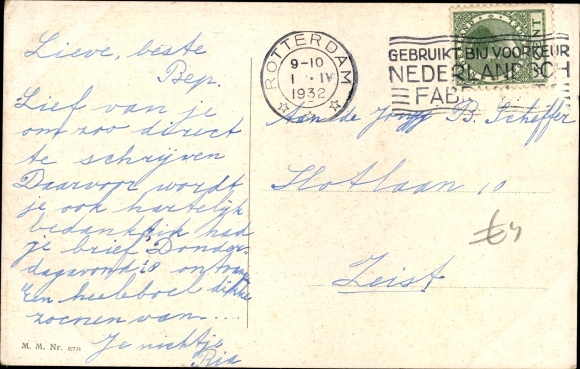 Lieve, beste
Bep.
Lief van je
om zoo direct
te schrijven
Daarvoor wordt
je ook hartelijk
bedankt ik had
je brief Donder-
dagavond
Een heeleboel dikke
zoenen van....
Je nichtje
Ria
M. M. Nr.
ROTTERDAM
9-10
1 IV
1932
GEBRUIKT BIJ VOORKEUR
NEDERLANDSCH
FAB
CENT
Aan de Jongj B. Scheffer
Slotlaan 10
Zeist